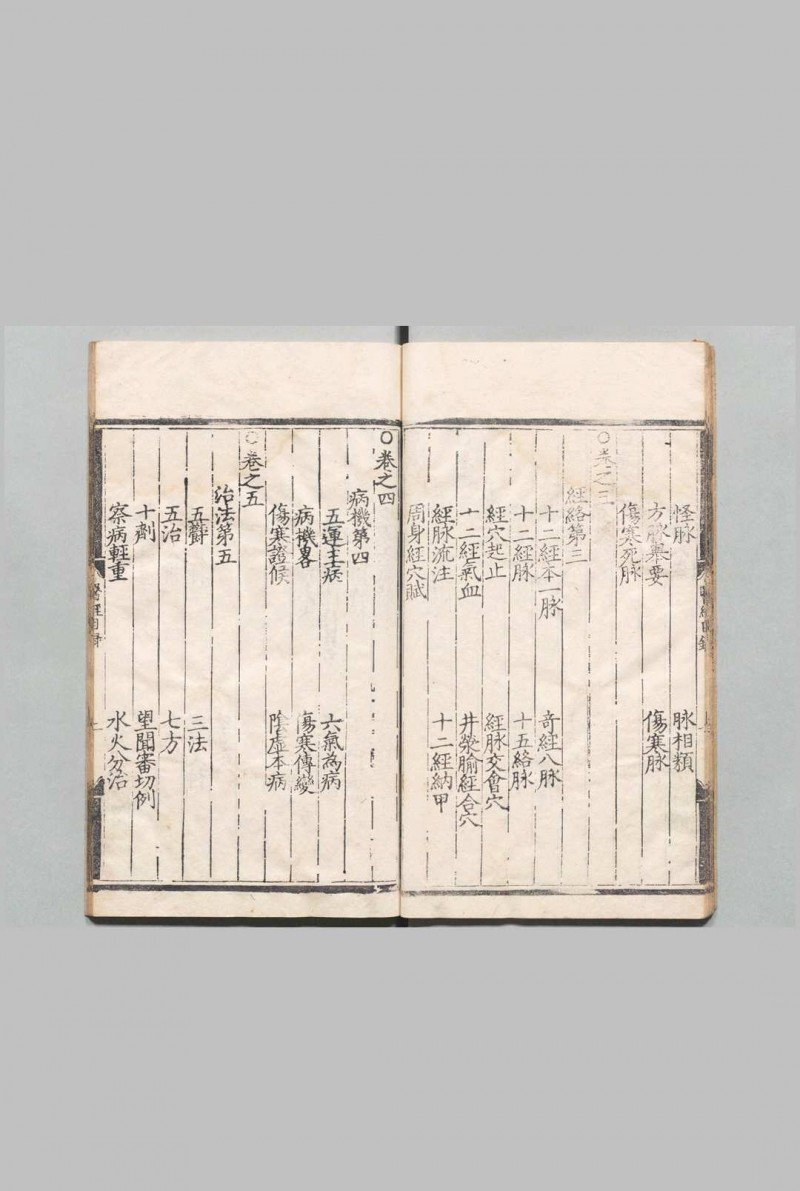 怪脉　脉相類
方脉舉要　傷寒脉
傷寒死脉
○卷之三
經絡第三
十二經本一脉　奇經八脉
十二經脉　十五絡脉
經穴起止　經脉交會穴
十二經氣血　井滎腧經合穴
經脉流注　十二經納甲
周身經穴賦
○卷之四
病機第四
五運主病　六氣為病
病機畧　傷寒傳變
傷寒證候　陰虛本病
○卷之五
治法第五
五欝　三法
五治　七方
十劑　望聞審切例
察病輕重　水火分治
醫經目録